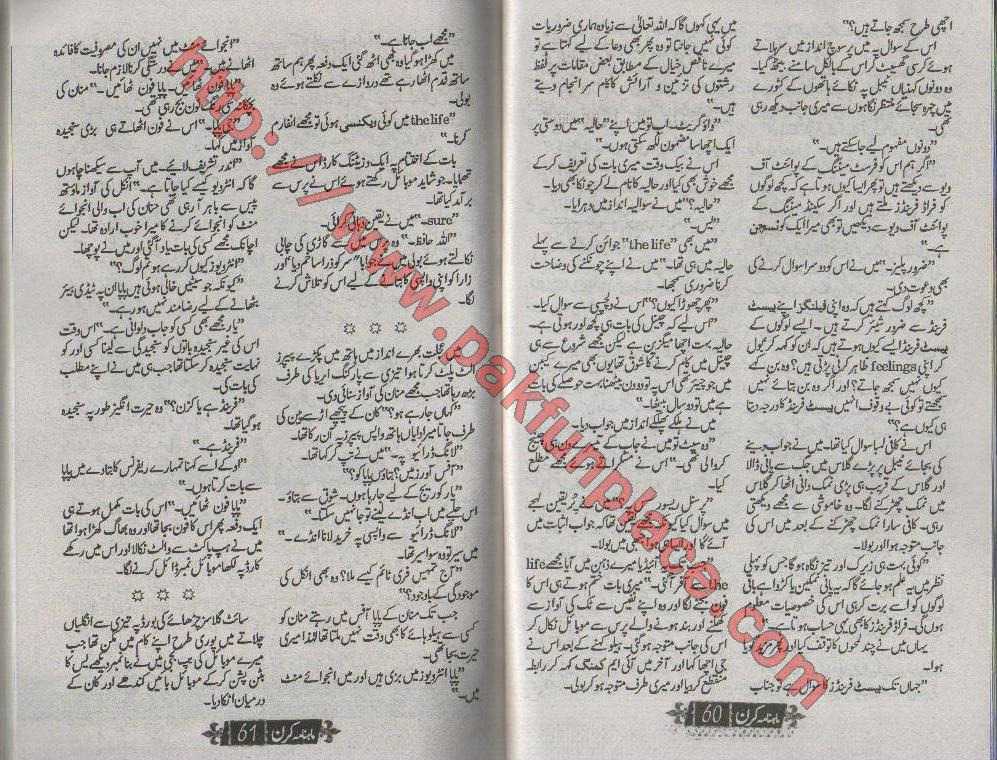 اچھی طرح سمجھ جاتے ہیں؟"
اس کے سوال پہ میں پرسوچ انداز میں سرہلاتے
ہوئے کرسی گھسیٹ کر اس کے بالکل سامنے بیٹھ گیا۔
وہ دونوں کہنیاں ٹیبل پہ ٹکائے ہاتھوں کے کٹورے
میں چہرہ سجائے منتظر نگاہوں سے میری جانب دیکھ رہی
تھی۔
"دونوں مفہوم لیے جاسکتے ہیں۔"
"اگر ہم اس کو فرسٹ میٹنگ کے پوائنٹ آف
ویو سے دیکھتے ہیں تو پھر ایسا کیوں ہوتا ہے کہ کچھ لوگوں
کو فراڈ فرینڈز ملتے ہیں اور اگر سیکنڈ میٹنگ کے
پوائنٹ آف ویو سے دیکھیں تو بھی میرا ایک کوئسچن
ہے۔"
"ضرور پلیز۔" میں نے اس کو دوسرا سوال کرنے کی
بھی دعوت دی۔
"کچھ لوگ کہتے ہیں کہ وہ اپنی فیلنگز اپنے بیسٹ
فرینڈ سے ضرور شیئر کرتے ہیں۔ ایسے لوگوں کے
بیسٹ فرینڈ ایسے کیوں ہوتے ہیں کہ ان کو کہہ کر عول
کر اپنی feelings ظاہر کرنی پڑتی ہیں؟ وہ بن کہے
کیوں نہیں سمجھ جاتے؟ اور اگر وہ بن بتائے نہیں
سمجھتے تو کوئی بے وقوف انہیں بیسٹ فرینڈ کا درجہ دیتا
ہی کیوں ہے؟"
اس نے کافی لمبا سوال کیا تھا۔ میں نے جواب دینے
کی بجائے ٹیبل پر پڑے گلاس میں جگ سے پانی ڈالا
اور گلاس کے قریب ہی پڑی نمک دانی اٹھا کر گلاس
میں نمک چھڑکنے لگا۔ وہ خاموشی سے مجھے دیکھتی
رہی۔ کافی سارا نمک چھڑکنے کے بعد میں اس کی
جانب متوجہ ہوا اور بولا۔
"کوئی بہت ہی زیرک اور تیز نگاہ ہوگا جس کو پہلی
نظر میں یہ علم ہو جائے گا کہ یہ پانی نمکین یا کڑوا ہے باقی
لوگوں کو اسے برت کر ہی اس کی خصوصیات معلوم
ہوں گی۔ فراڈ فرینڈز کا بھی یہی حساب ہوتا ہے۔"
یہاں میں نے چند لمحوں کا توقف کیا اور پھر مزید گویا
ہوا۔
"جہاں تک بیسٹ فرینڈز کا سوال ہے تو جناب
میں یہی کہوں گا کہ اللہ تعالیٰ سے زیادہ ہماری ضروریات
کوئی نہیں جانتا تو وہ پھر بھی دعا کے لیے کہتا ہے تو
میرے ناقص خیال کے مطابق بعض مقامات پر لفظ
رشتوں کی تزئین و آرائش کا کام سرانجام دیتے
ہیں۔"
"واؤ گریٹ۔ اب تو میں اپنے "حالیہ" میں دوستی پر
ایک اچھا سا مضمون لکھ سکتی ہوں۔"
اس نے بیک وقت میری بات کی تعریف کر کے
مجھے خوش بھی کیا اور حالیہ کا نام لے کر چونکا بھی دیا۔
"حالیہ؟" میں نے سوالیہ انداز میں دہرایا۔
"لیس۔"
"میں بھی "the life" جوائن کرنے سے پہلے
حالیہ میں ہی تھا۔" میں نے اپنے چونکنے کی وضاحت
کرنا ضروری سمجھا۔
"پھر چھوڑا کیوں؟" اس نے دلچسپی سے سوال کیا۔
"اس لیے کہ چینل کی بات ہی کچھ اور ہوتی ہے۔
حالیہ بہت اچھا میگزین ہے لیکن مجھے شروع سے ہی
چینل میں کام کرنے کا شوق تھا یوں بھی میرے کیبن
میں جو چیئر تھی اس پہ تو دو دن بیٹھنا بہت حوصلے کی بات
ہے میں تو دو سال بیٹھا۔"
میں نے ہلکے پھلکے انداز میں جواب دیا۔
"وہ سیٹ تو میں نے جاب کے دوسرے دن ہی چینج
کروالی تھی۔" اس نے مسکراتے ہوئے مجھے مطلع
کیا۔
میں سوال کیا
آئے گا میں بولا۔
آئیڈیا میرے ذہن میں آیا مجھے life
the سے آفر آگئی۔" میری بات ختم ہوتے ہی اس کا
فون بجنے لگا اور وہ اپنے
کھلنے اور بند ہونے والے پرس سے موبائل نکال کر
اس کی جانب متوجہ ہوگئی۔ ہیلو کہنے کے بعد اس نے
جی اچھا کہا اور آخر میں آئی ایم کمنگ کہہ کر رابطہ
منقطع کر دیا اور میری طرف متوجہ ہو کر بولی۔
ماہنامہ کرن 60
"مجھے اب جانا ہے۔"
میں کھڑا ہو گیا وہ بھی اٹھ گئی ایک دفعہ پھر ہم ساتھ
ساتھ قدم اٹھا رہے تھے دروازے سے نکلتے ہوئے وہ
بولی۔
"the life میں کوئی ویکنسی ہوئی تو مجھے انفارم
کرنا۔"
بات کے اختتام پہ ایک وزیٹنگ کارڈ اس نے مجھے
تھمایا۔ جو شاید موبائل رکھتے ہوئے اس نے پرس سے
برآمد کیا تھا۔
"sure۔" میں نے یقین دہانی کرائی۔
"اللہ حافظ۔" وہ
نکالتے ہوئے بولی میں نے جواباً سر کو ذرا سا خم دیا اور
زارا کو اپنی واپسی کا بتانے کے لیے اس کو تلاش کرنے
لگا۔
☼ ☼ ☼
میں عجلت بھرے انداز میں ہاتھ میں پکڑے پیپرز
الٹ پلٹ کرتا ہوا تیزی سے پارکنگ ایریا کی طرف
بڑھ رہا تھا جب مجھے منان کی آواز سنائی دی۔
"کہاں جا رہے ہو؟" کان کے پیچھے اڑسے پین کی
طرف جاتا میرا دایاں ہاتھ واپس پیپرز پہ آن رکا تھا۔
"لانگ ڈرائیو پہ۔" میں نے تپ کر کہا تھا۔
"آفس آورز میں؟ بتاؤں پاپا کو؟"
"یار کوریج کے لیے جا رہا ہوں۔ شوق سے بتاؤ۔
اس حلیے میں اب انڈے لینے تو جا نہیں سکتا۔"
"لانگ ڈرائیو سے واپسی پہ خرید لانا انڈے۔"
میں سیر تو وہ سوا سیر تھا۔
"آج تمہیں فری ٹائم کیسے ملا؟ وہ بھی انکل کی
موجودگی کے باوجود؟"
جب تک منان کے پاپا آفس میں رہتے منان کو
کسی سے ہیلو ہائے کا بھی وقت نہیں ملتا تھا لہٰذا میری
حیرت بجا تھی۔
"پاپا انٹرویوز میں بزی ہیں اور میں انجوائے منٹ
میں۔"
"انجوائے منٹ میں نہیں ان کی مصروفیت کا فائدہ
اٹھانے میں۔" کرنا لازم جانا۔
"پاپا فون اٹھائیں۔ پاپا فون اٹھائیں۔" منان کی
رنگ ٹون بج رہی تھی۔
"جی پاپا۔" اس نے فون اٹھاتے ہی بڑی سنجیدہ
آواز میں کہا۔
"اندر تشریف لائیے۔ میں آپ سے سیکھنا چاہوں
گا کہ انٹرویو کیسے کیا جاتا ہے۔" انکل کی آواز ماؤتھ
پیس سے باہر آ رہی تھی منان کی اب والی انجوائے
منٹ کو انجوائے کرنے کا میرا خوب ارادہ تھا۔ لیکن
اچانک مجھے کسی کی بات یاد آگئی اور میں نے پوچھا۔
"انٹرویوز کیوں کر رہے ہو تم لوگ؟"
"کیونکہ جو سیٹیں خالی ہوتی ہیں پاپا ان پہ ٹیڈی بیئر
بٹھانے کے لیے رضامند نہیں ہو رہے۔"
"یار مجھے بھی کسی کو جاب دلوانی ہے۔" اس وقت
اس کی غیر سنجیدہ باتوں کو سنجیدگی سے لینا کسی اور کو
نہایت سنجیدہ کر سکتا تھا جب ہی میں نے اپنے مطلب
کی بات کی۔
"فرینڈ ہے یا کزن؟" وہ حیرت انگیز طور پہ سنجیدہ
ہوگیا تھا۔
"فرینڈ ہے۔"
"اوکے اسے کہنا تمہارے ریفرنس کا بتا دے میں پاپا
سے بات کرتا ہوں۔"
"پاپا فون اٹھائیں۔" اس کی بات مکمل ہوتے ہی
ایک دفعہ پھر اس کا فون بجا تھا اور وہ بھاگ کھڑا ہوا تھا
میں نے ہپ پاکٹ سے والٹ نکالا اور اس میں رکھے
کارڈ پہ لکھا موبائل نمبر ڈائل کرنے لگا۔
☼ ☼ ☼
سائٹ گلاسز چڑھائے کی بورڈ پہ تیزی سے انگلیاں
چلاتے میں پوری طرح اپنے کام میں مگن تھا جب
میرے موبائل کی بپ بجی میں نے بنا نمبر دیکھے یس کا
بٹن پش کر کے موبائل بائیں کندھے اور کان کے
درمیان اٹکا دیا۔
ماہنامہ کرن 61
http://www.pakfunplace.com